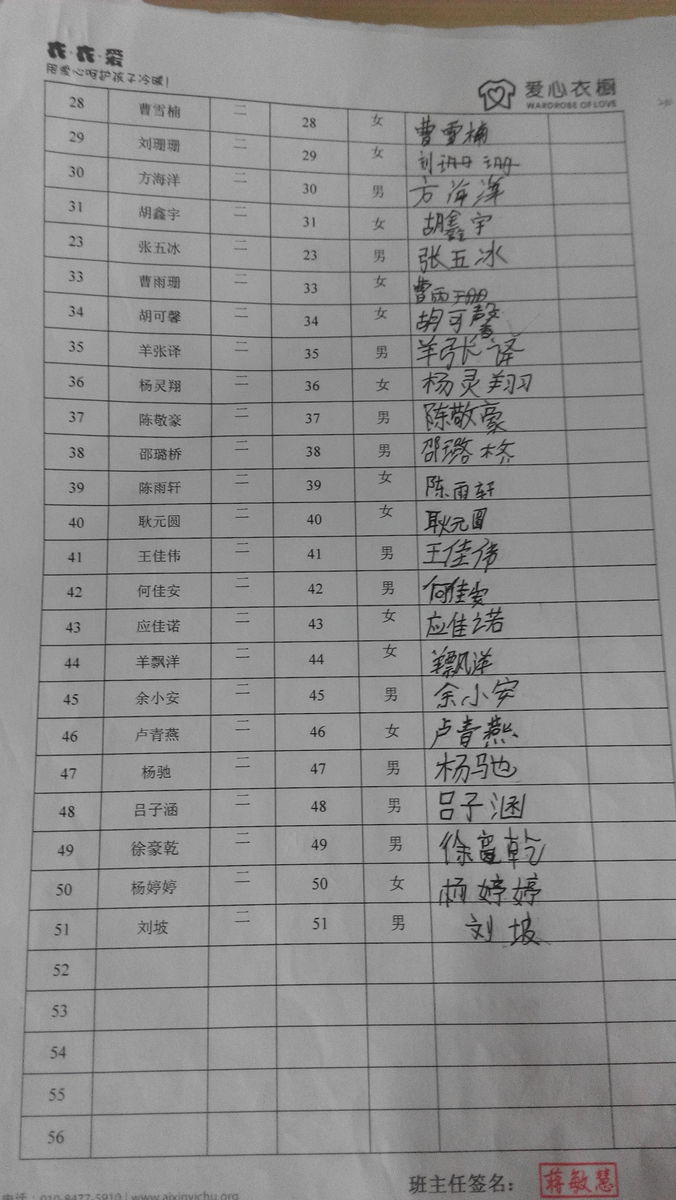 衣·衣·爱
用爱心呵护孩子冷暖!
爱心衣橱
WARDROBE OF LOVE
28 曹雪楠 二 28 女 曹雪楠
29 刘珊珊 二 29 女 刘珊珊
30 方海洋 二 30 男 方海洋
31 胡鑫宇 二 31 女 胡鑫宇
23 张五冰 二 23 男 张五冰
33 曹雨珊 二 33 女 曹雨珊
34 胡可馨 二 34 女 胡可馨
35 羊张译 二 35 男 羊张译
36 杨灵翔 二 36 女 杨灵翔
37 陈敬豪 二 37 男 陈敬豪
38 邵璐桥 二 38 男 邵璐桥
39 陈雨轩 二 39 女 陈雨轩
40 耿元圆 二 40 女 耿元圆
41 王佳伟 二 41 男 王佳伟
42 何佳安 二 42 男 何佳安
43 应佳诺 二 43 女 应佳诺
44 羊飘洋 二 44 女 羊飘洋
45 余小安 二 45 男 余小安
46 卢青燕 二 46 女 卢青燕
47 杨驰 二 47 男 杨驰
48 吕子涵 二 48 男 吕子涵
49 徐豪乾 二 49 男 徐豪乾
50 杨婷婷 二 50 女 杨婷婷
51 刘坡 二 51 男 刘坡
52
53
54
55
56
班主任签名： 蒋敏慧
电话：010-8477-5910 | www.aixinyichu.org